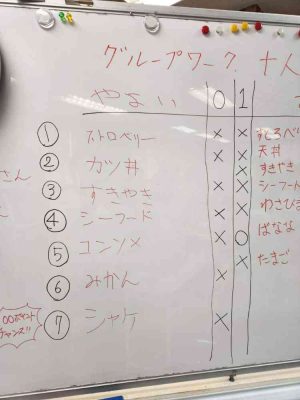 グループワーク 十人
やよい 0 1
① ストロベリー × × すとろべ
② カツ丼 × × 天丼
③ すきやき × × すきやき
④ シーフード × × シーフート
⑤ コンソメ × ○ ばなな
⑥ みかん × たまご
⑦ シャケ ×
わさび
さん
00ポイント
チャンス!!